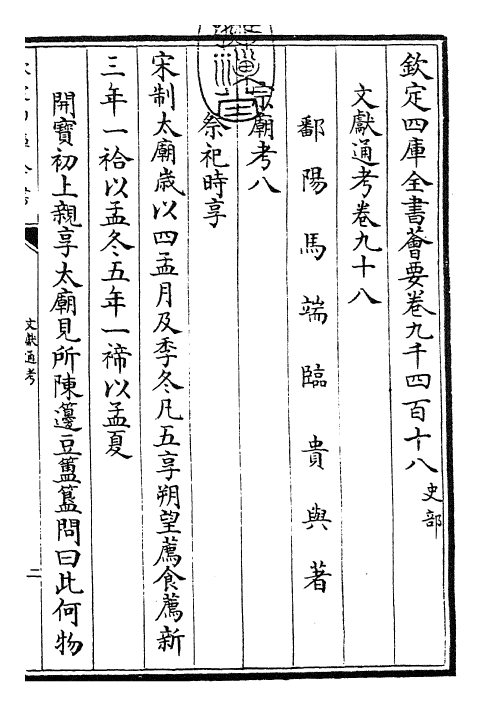 欽定四庫全書薈要卷九千四百十八 史部
文獻通考卷九十八
鄱陽馬端臨貴與著
宗廟考八
祭祀時享
宋制太廟歲以四孟月及季冬凡五享朔望薦食薦新
三年一祫以孟冬五年一禘以孟夏
開寶初上親享太廟見所陳籩豆簠簋問曰此何物
文獻通考